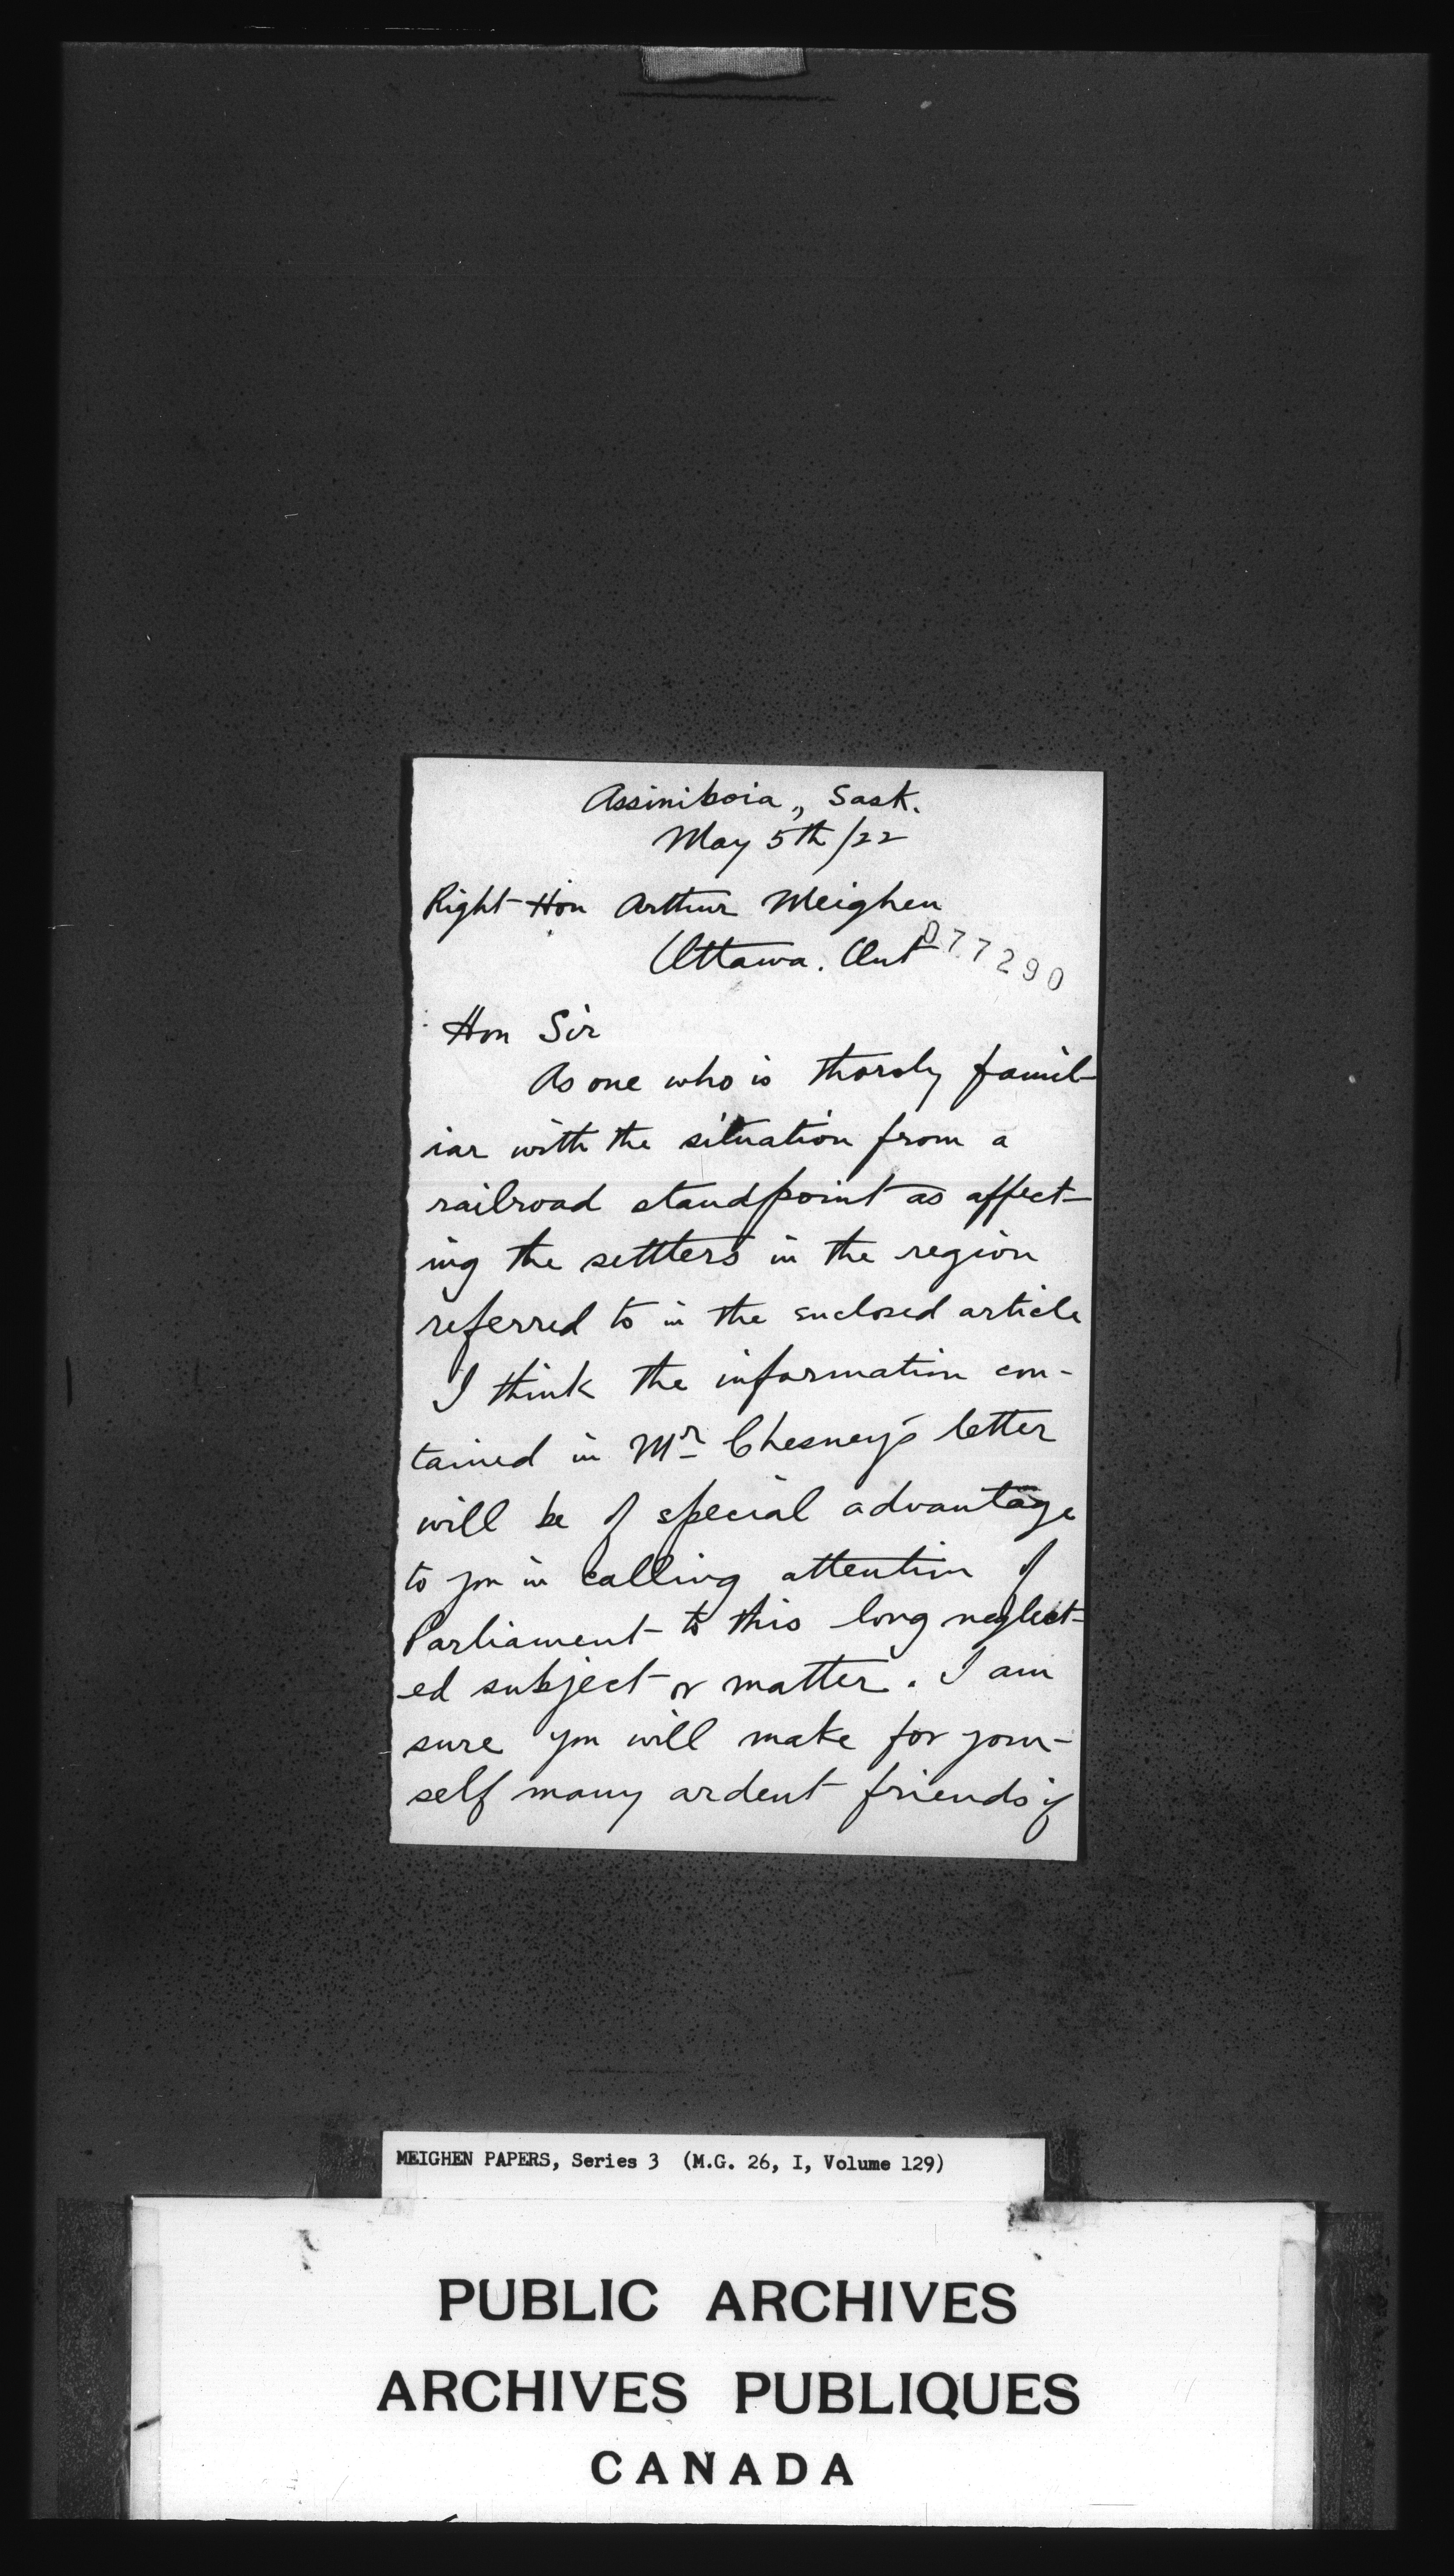 Assiniboia,, Sask.
May 5th/22
Right Hon Arthur Meighen
Ottawa. Ont
077290
Hon Sir
As one who is thoroly famil-
iar with the situation from a
railroad standpoint as affect-
ing the settlers in the region
referred to in the enclosed article
I think the information con-
tained in Mr Chesney's letter
will be of special advantage
to you in calling attention of
Parliament to this long neglect-
ed subject or matter. I am
sure you will make for your-
self many ardent friends if
MEIGHEN PAPERS, Series 3 (M.G. 26, I, Volume 129)
PUBLIC ARCHIVES
ARCHIVES PUBLIQUES
CANADA